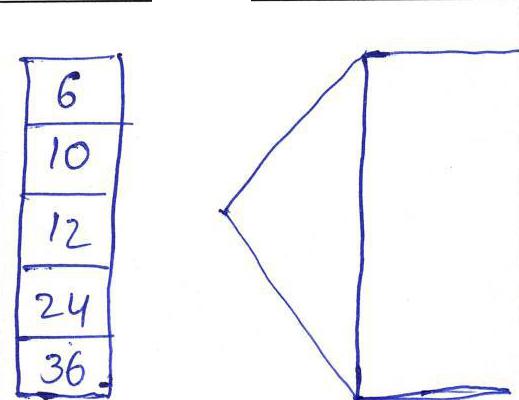 6
10
12
24
36